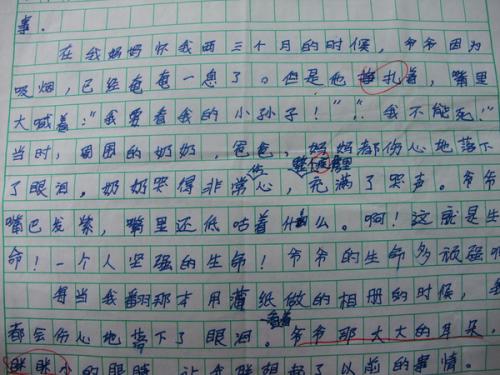 事.
在我妈妈怀我两三个月的时候，爷爷因为
吸烟，已经奄奄一息了。但是他挣扎着，嘴里
大喊着："我要看我的小孙子！"，"我不能死！"
当时，周围的奶奶，爸爸，妈妈都伤心地落下
了眼泪，奶奶哭得非常伤心，整个房里充满了哭声。爷爷
嘴巴发紫，嘴里还低咕着什么。啊！这就是生
命！一个人坚强的生命！爷爷的生命多顽强
每当我翻那本用薄纸做的相册的时候，我
都会伤心地落下了眼泪。看着爷爷那大大的耳朵，
眯眯小的眼睛，让我联想起了以前的事情。